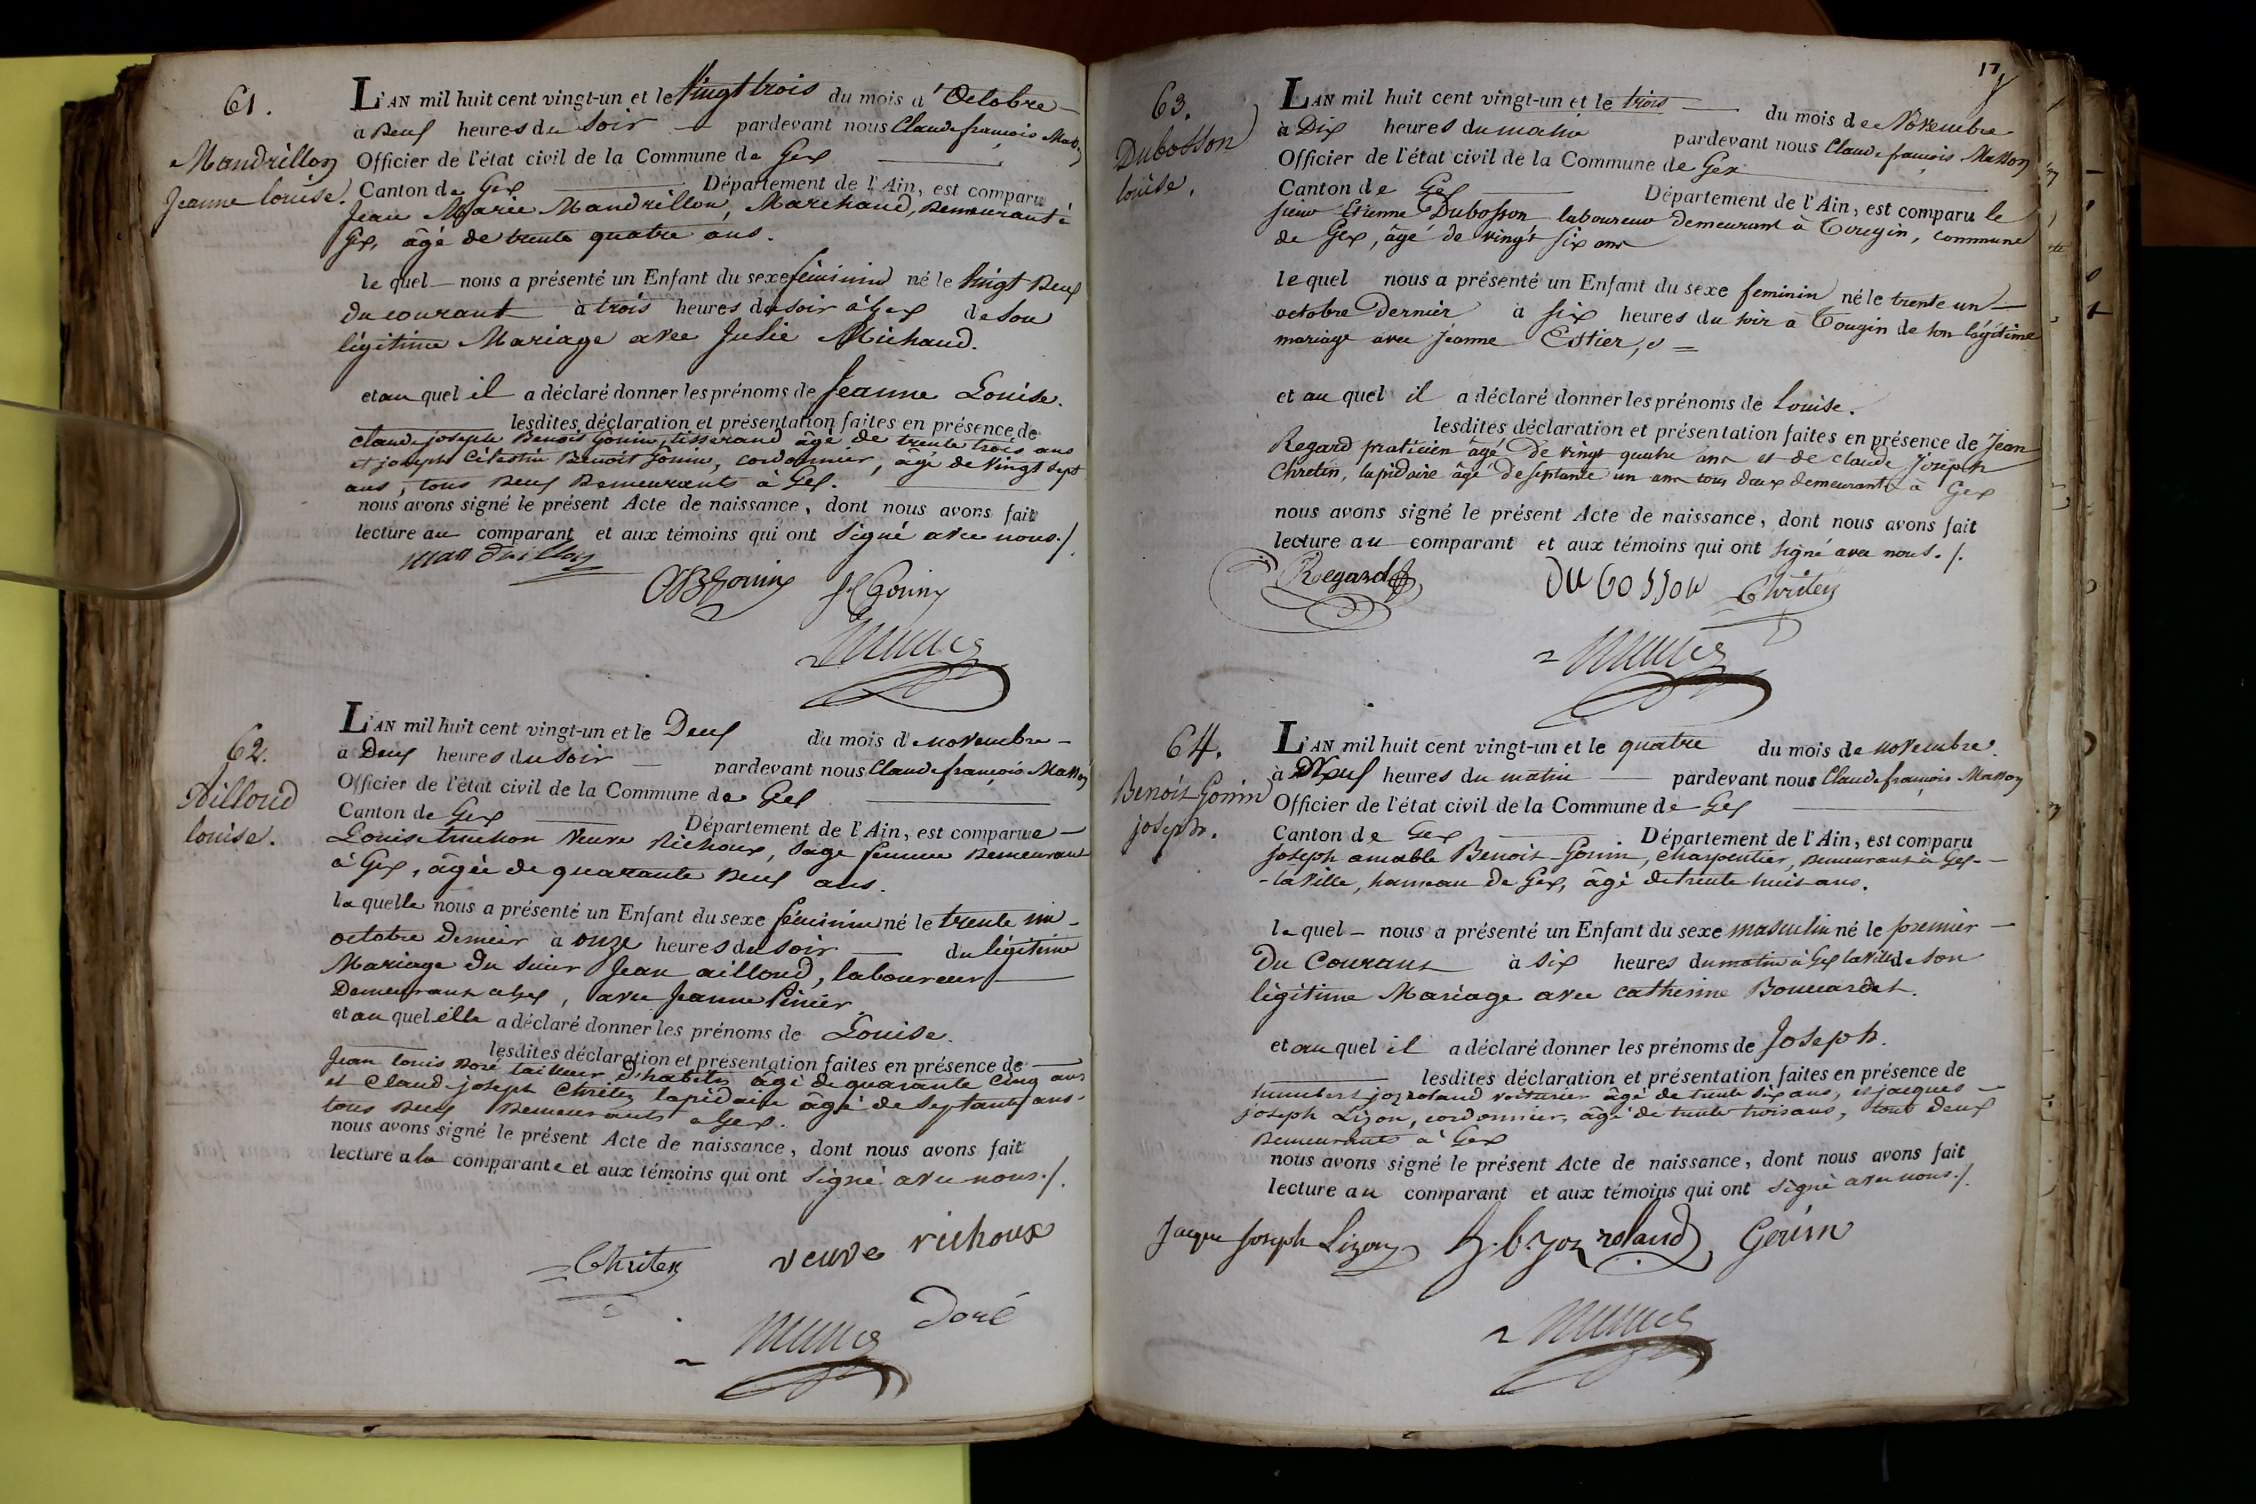 61.
Mandrillon
Jeanne louise.
L'AN mil huit cent vingt-un et le Vingt trois du mois d'Octobre
à Deux heures du Soir pardevant nous Claude françois Masson
Officier de l'état civil de la Commune de Gex
Canton de Gex Département de l'Ain, est comparu
Jean Marie Mandrillon, Marchand, Demeurant à
Gex, âgé de trente quatre ans.
le quel nous a présenté un Enfant du sexe féminin né le Vingt Deux
du courant à trois heures du soir à Gex de Son
légitime Mariage avec Julie Michaud.
et au quel il a déclaré donner les prénoms de Jeanne Louise.
lesdites déclaration et présentation faites en présence de
Claude joseph Benoit Gonin, tisserand âgé de trente trois ans
et joseph Célestin Benoit Gonin, cordonnier, âgé de Vingt sept
ans, tous Deux Demeurants à Gex.
nous avons signé le présent Acte de naissance, dont nous avons fait
lecture au comparant et aux témoins qui ont Signé avec nous./.
mandrillon
CJBGonin JCGonin
62.
Ailloud
louise.
L'AN mil huit cent vingt-un et le Deux du mois d novembre
à Deux heures du Soir pardevant nous Claude françois Masson
Officier de l'état civil de la Commune de Gex
Canton de Gex Département de l'Ain, est comparue
Louise truchon Veuve Richoux, Sage femme Demeurant
à Gex, âgée de quarante Deux ans.
la quelle nous a présenté un Enfant du sexe féminin né le trente un
octobre Dernier à onze heures du Soir du légitime
Mariage du Sieur Jean ailloud, laboureur
Demeurant à Gex, avec Jeanne Pinier
et au quel elle a déclaré donner les prénoms de Louise.
lesdites déclaration et présentation faites en présence de
Jean louis Doré tailleur d'habits âgé de quarante Cinq ans
et Claude joseph Chreten lapidaire âgé de Septante ans.
tous Deux Demeurants à Gex.
nous avons signé le présent Acte de naissance, dont nous avons fait
lecture a la comparante et aux témoins qui ont Signé avec nous./.
Chreten veuve richoux
Doré
17
63.
Dubosson
louise.
L'AN mil huit cent vingt-un et le trois du mois de Novembre
à Dix heures du matin pardevant nous Claude françois Masson
Officier de l'état civil de la Commune de Gex
Canton de Gex Département de l'Ain, est comparu le
sieur Etienne Dubosson laboureur demeurant à Tougin, commune
de Gex, âgé de vingt six ans
le quel nous a présenté un Enfant du sexe feminin né le trente un
octobre Dernier à six heures du soir à Tougin de son légitime
mariage avec jeanne Estier,
et au quel il a déclaré donner les prénoms de Louise.
lesdites déclaration et présentation faites en présence de Jean
Regard praticien âgé de vingt quatre ans et de claude joseph
Chreten, lapidaire âgé de septante un ans tous deux demeurants à Gex
nous avons signé le présent Acte de naissance, dont nous avons fait
lecture au comparant et aux témoins qui ont signé avec nous./.
Regard Dubosson Chreten
64.
Benoit Gonin
joseph.
L'AN mil huit cent vingt-un et le quatre du mois de novembre
à Neuf heures du matin pardevant nous Claude françois Masson
Officier de l'état civil de la Commune de Gex
Canton de Gex Département de l'Ain, est comparu
Joseph amable Benoit-Gonin, charpentier, Demeurant à Gex-
-la Ville, hameau de Gex, âgé de trente huit ans.
le quel nous a présenté un Enfant du sexe masculin né le premier
Du Courant à six heures du matin à Gex la Ville de Son
légitime Mariage avec Catherine Bouvardet.
et au quel il a déclaré donner les prénoms de Joseph.
lesdites déclaration et présentation faites en présence de
humbert joz roland voiturier âgé de trente six ans, et jacques
joseph Lizon, cordonnier, âgé de trente trois ans, tout deux
Demeurants à Gex
nous avons signé le présent Acte de naissance, dont nous avons fait
lecture au comparant et aux témoins qui ont Signé avec nous./.
Jacque Joseph Lizon h.b. joz roland Gonin